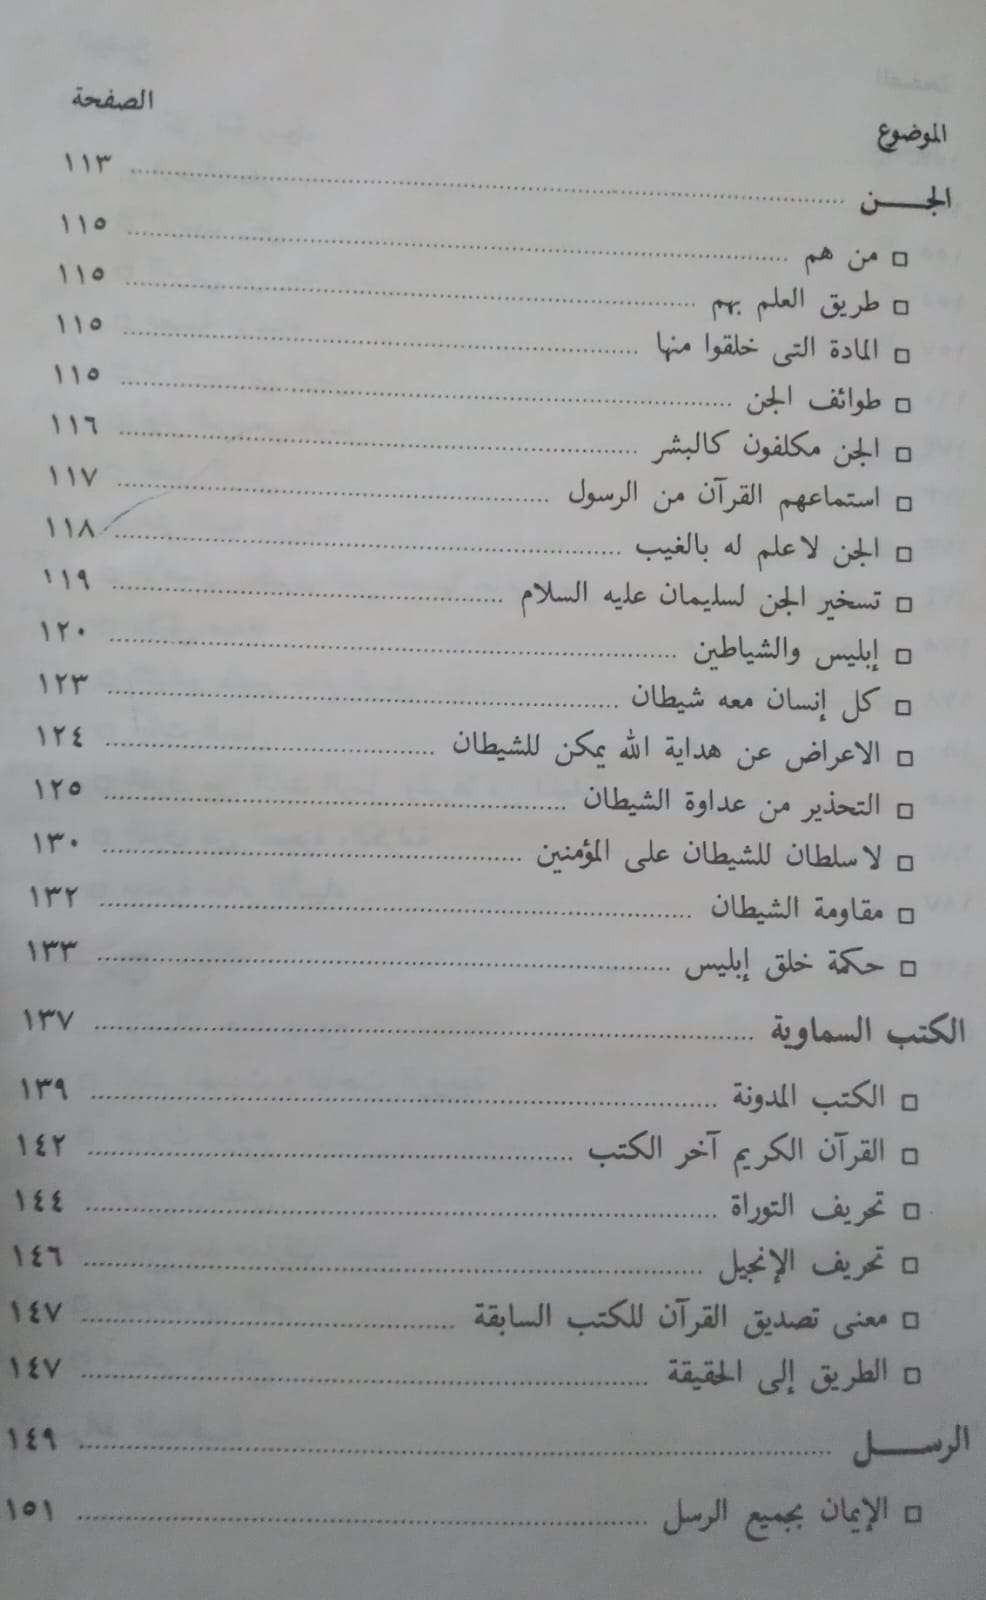 الموضوع الصفحة
الجـــن ........ ١١٣
□ من هم ........ ١١٥
□ طريق العلم بهم ........ ١١٥
□ المادة التى خلقوا منها ........ ١١٥
□ طوائف الجن ........ ١١٥
□ الجن مكلفون كالبشر ........ ١١٦
□ استماعهم القرآن من الرسول ........ ١١٧
□ الجن لا علم له بالغيب ........ ١١٨
□ تسخير الجن لسليمان عليه السلام ........ ١١٩
□ إبليس والشياطين ........ ١٢٠
□ كل إنسان معه شيطان ........ ١٢٣
□ الاعراض عن هداية الله يمكن للشيطان ........ ١٢٤
□ التحذير من عداوة الشيطان ........ ١٢٥
□ لا سلطان للشيطان على المؤمنين ........ ١٣٠
□ مقاومة الشيطان ........ ١٣٢
□ حكمة خلق إبليس ........ ١٣٣
الكتب السماوية ........ ١٣٧
□ الكتب المدونة ........ ١٣٩
□ القرآن الكريم آخر الكتب ........ ١٤٢
□ تحريف التوراة ........ ١٤٤
□ تحريف الإنجيل ........ ١٤٦
□ معنى تصديق القرآن للكتب السابقة ........ ١٤٧
□ الطريق إلى الحقيقة ........ ١٤٧
الرســـل ........ ١٤٩
□ الإيمان بجميع الرسل ........ ١٥١